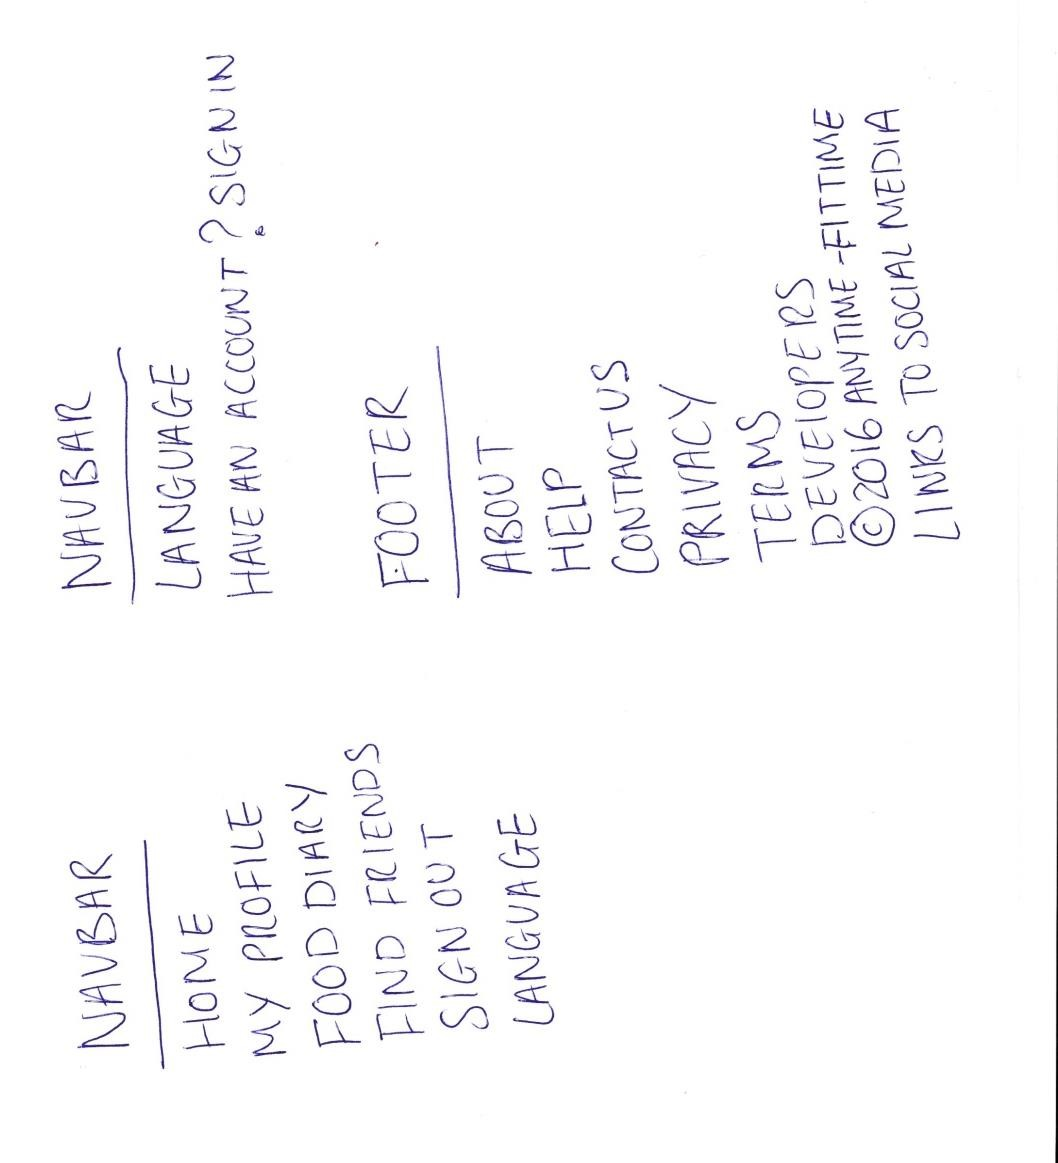 NAVBAR
HOME
MY PROFILE
FOOD DIARY
FIND FRIENDS
SIGN OUT
LANGUAGE
NAVBAR
LANGUAGE
HAVE AN ACCOUNT? SIGN IN
FOOTER
ABOUT
HELP
CONTACT US
PRIVACY
TERMS
DEVElOPERS
©2016 ANYTIME-FITTIME
LINKS TO SOCIAL MEDIA